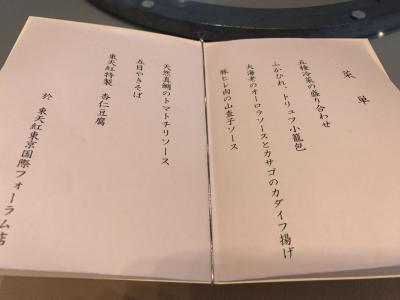 菜単
五種冷菜の盛り合わせ
ふかひれ、トリュフ小籠包
大海老のオーロラソースとカサゴのカダイフ揚げ
豚ヒレ肉の山査子ソース
天然真鯛のトマトチリソース
五目やきそば
東天紅特製 杏仁豆腐
於 東天紅東京国際フォーラム店